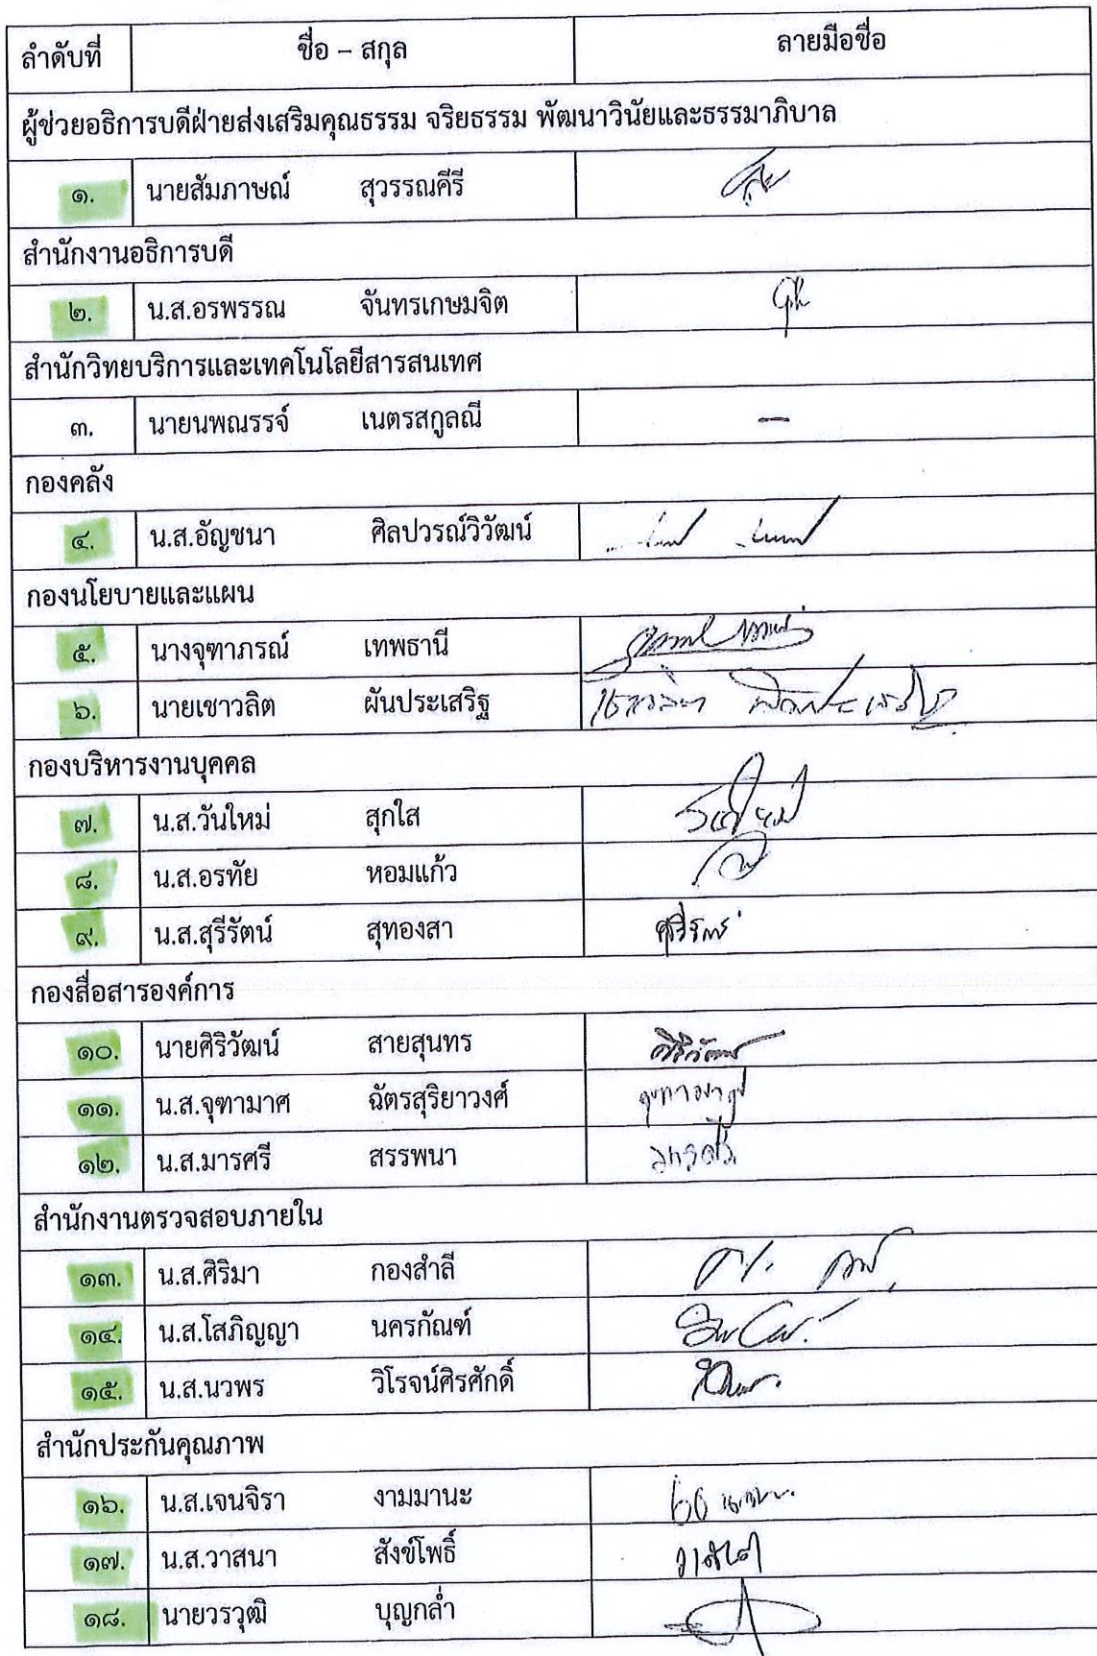 ลำดับที่ ชื่อ – สกุล ลายมือชื่อ
ผู้ช่วยอธิการบดีฝ่ายส่งเสริมคุณธรรม จริยธรรม พัฒนาวินัยและธรรมาภิบาล
๑. นายสัมภาษณ์ สุวรรณคีรี
สำนักงานอธิการบดี
๒. น.ส.อรพรรณ จันทรเกษมจิต
สำนักวิทยบริการและเทคโนโลยีสารสนเทศ
๓. นายนพณรรจ์ เนตรสกูลณี –
กองคลัง
๔. น.ส.อัญชนา ศิลปวรณ์วิวัฒน์
กองนโยบายและแผน
๕. นางจุฑาภรณ์ เทพธานี
๖. นายเชาวลิต ผันประเสริฐ
กองบริหารงานบุคคล
๗. น.ส.วันใหม่ สุกใส
๘. น.ส.อรทัย หอมแก้ว
๙. น.ส.สุรีรัตน์ สุทองสา สุรีรัตน์
กองสื่อสารองค์การ
๑๐. นายศิริวัฒน์ สายสุนทร ศิริวัฒน์
๑๑. น.ส.จุฑามาศ ฉัตรสุริยาวงศ์ จุฑามาศ
๑๒. น.ส.มารศรี สรรพนา มารศรี
สำนักงานตรวจสอบภายใน
๑๓. น.ส.ศิริมา กองสำลี
๑๔. น.ส.โสภิญญา นครกัณฑ์
๑๕. น.ส.นวพร วิโรจน์ศิรศักดิ์
สำนักประกันคุณภาพ
๑๖. น.ส.เจนจิรา งามมานะ
๑๗. น.ส.วาสนา สังข์โพธิ์ วาสนา
๑๘. นายวรวุฒิ บุญกล่ำ